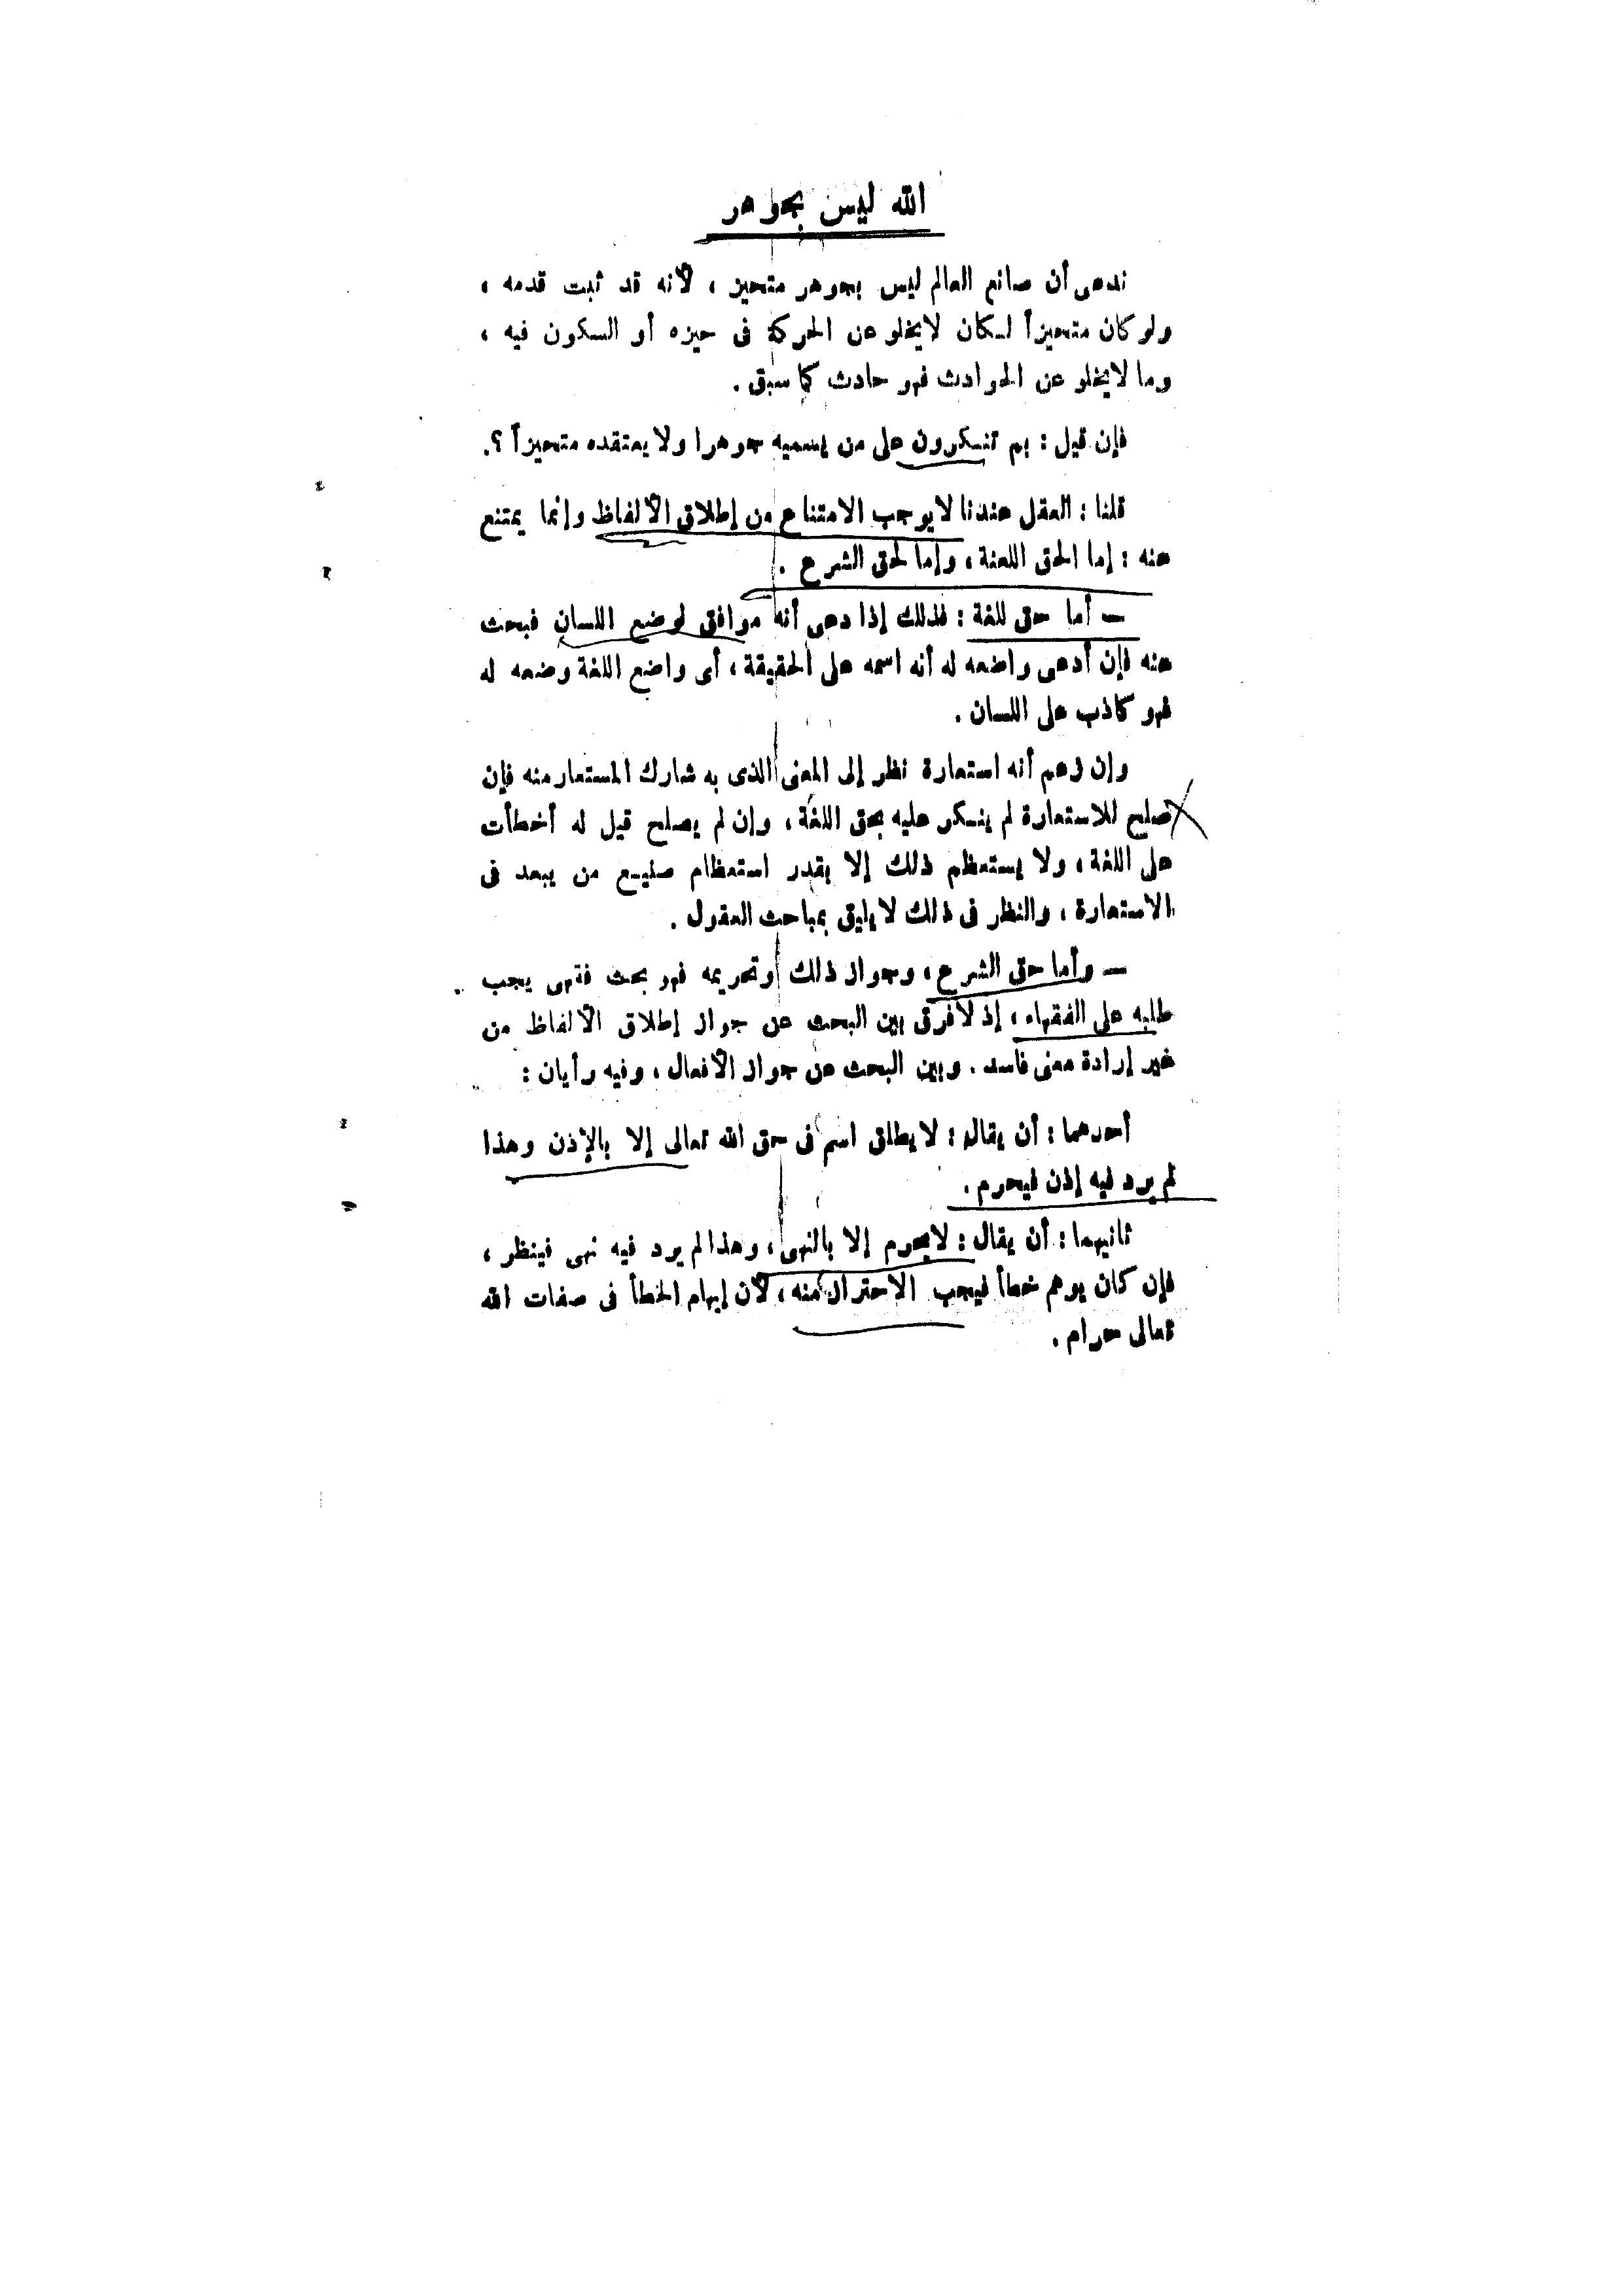 الله ليس بجوهر
ندعى أن صانع العالم ليس بجوهر متحيز ، لأنه قد ثبت قدمه ،
ولو كان متحيزاً لكان لايخلو عن الحركة فى حيزه أو السكون فيه ،
وما لايخلو عن الحوادث فهو حادث كما سبق .
فإن قيل : بم تنكرون على من يسميه جوهرا ولا يعتقده متحيزاً ؟.
قلنا : العقل عندنا لايوجب الامتناع من إطلاق الألفاظ وإنما يمتنع
عنه : إما الحق اللغة ، وإما لحق الشرع .
— أما حق للغة : فذلك إذا دعى أنه موافق لوضع اللسان فبحث
عنه فإن أدعى واضعه له أنه اسمه على الحقيقة ، أى واضع اللغة وضعه له
فهو كاذب على اللسان .
وإن زعم أنه استعارة نظر إلى المعنى الذى به شارك المستعار منه فإن
صلح للاستعارة لم ينكر عليه بحق اللغة ، وإن لم يصلح قيل له أخطأت
على اللغة ، ولا يستعظم ذلك إلا بقدر استعظام صنيع من يبعد فى
الاستعارة ، والنظر فى ذلك لا يليق بمباحث العقول .
— وأما حق الشرع ، وجواز ذلك وتحريمه فهو بحث فقهى يجب
طلبه على الفقهاء ، إذ لافرق بين البحث عن جواز إطلاق الألفاظ من
غير إرادة معنى فاسد . وبين البحث عن جواز الأفعال ، وفيه رأيان :
أحدهما : أن يقال : لا يطلق اسم فى حق الله تعالى إلا بالإذن وهذا
لم يرد فيه إذن فيحرم .
ثانيهما : أن يقال : لايحرم إلا بالنهى ، وهذا لم يرد فيه نهى فينظر ،
فإن كان يوهم خطأ فيجب الاحتراز منه ، لأن إيهام الخطأ فى صفات الله
تعالى حرام .